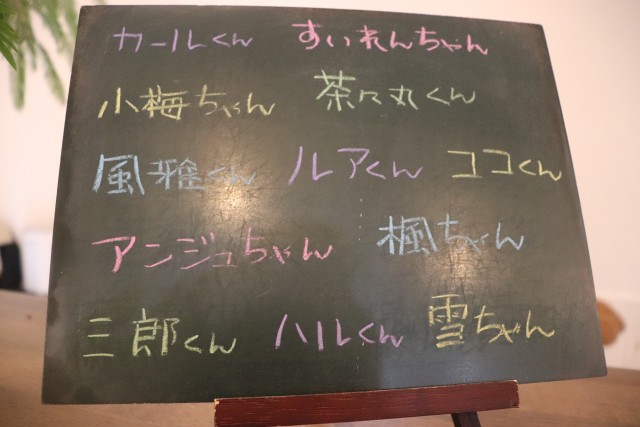 カールくん すいれんちゃん
小梅ちゃん 茶々丸くん
風雅くん ルアくん ココくん
アンジュちゃん 楓ちゃん
三郎くん ハルくん 雪ちゃん